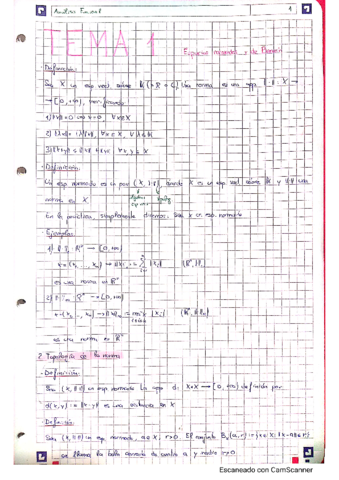 Análisis Funcional 1
TEMA 1
Espacios normados y de Banach
- Definición:
Sea X un esp vect sobre K (= R o C). Una norma es un app ‖·‖: X →
→ [0, +∞[ verificando:
1) ‖x‖ = 0 x = 0, ∀x∈X
2) ‖λx‖ = |λ|‖x‖, ∀x∈X, ∀λ∈K
3) ‖x+y‖ ≤ ‖x‖ + ‖y‖ ∀x,y ∈ X
- Definición:
Un esp normado es un par (X, ‖·‖), donde X es un esp vect sobre K y ‖·‖ una
norma en X
En la práctica, simplemente diremos: Sea X esp. normado
- Ejemplos:
1) ‖·‖₁: Rⁿ → [0, +∞[
x = (x₁, ..., xₙ) → ‖x‖₁ = Σ |xᵢ| (Rⁿ, ‖·‖₁)
es una norma en Rⁿ
2) ‖·‖∞: Rⁿ → [0, +∞[
x = (x₁, ..., xₙ) → ‖x‖∞ = máx |xᵢ| (Rⁿ, ‖·‖∞)
es una norma en Rⁿ
2. Topología de la norma
- Definición:
Sea (X, ‖·‖) un esp normado. La app d: X×X → [0, +∞[ definida por
d(x,y) = ‖x-y‖ es una distancia en X
- Definición:
Sea (X, ‖·‖) un esp normado, a∈X, r>0. El conjunto B(a,r) = {x∈X: ‖x-a‖≤r}
se llama la bola cerrada de centro a y radio r>0
Escaneado con CamScanner